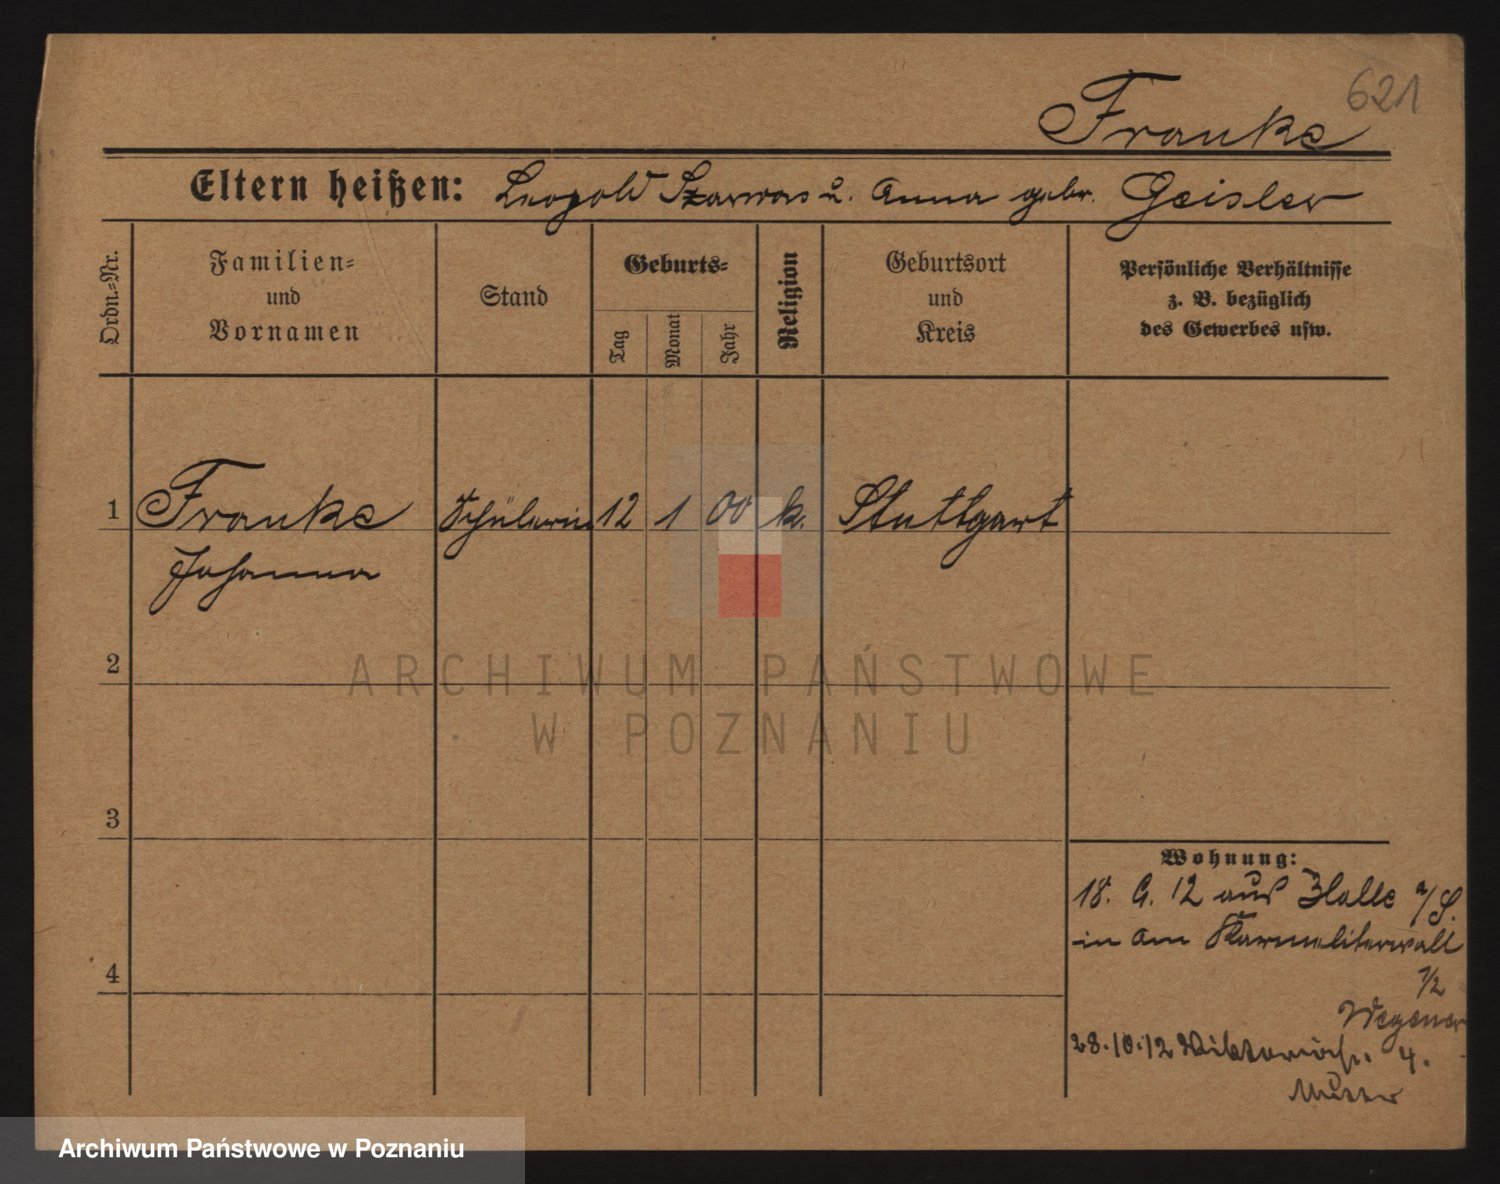 621
Franke
Eltern heißen: Leopold Szarwas u. Anna gebr. Geisler
Ordn.-Nr.
Familien- und Vornamen
Stand
Geburts-
Tag
Monat
Jahr
Religion
Geburtsort und Kreis
Persönliche Verhältnisse
z. B. bezüglich
des Gewerbes usw.
1 Franke Schülerin 12 1 00 k. Stuttgart
Johanna
2
ARCHIWUM PAŃSTWOWE
W POZNANIU
3
4
Wohnung:
18. 9. 12 aus Halle a/S.
in Am Karmeliterwall
1/2
Wegener
28.10.12 Viktoriastr. 4.
Mutter
Archiwum Państwowe w Poznaniu